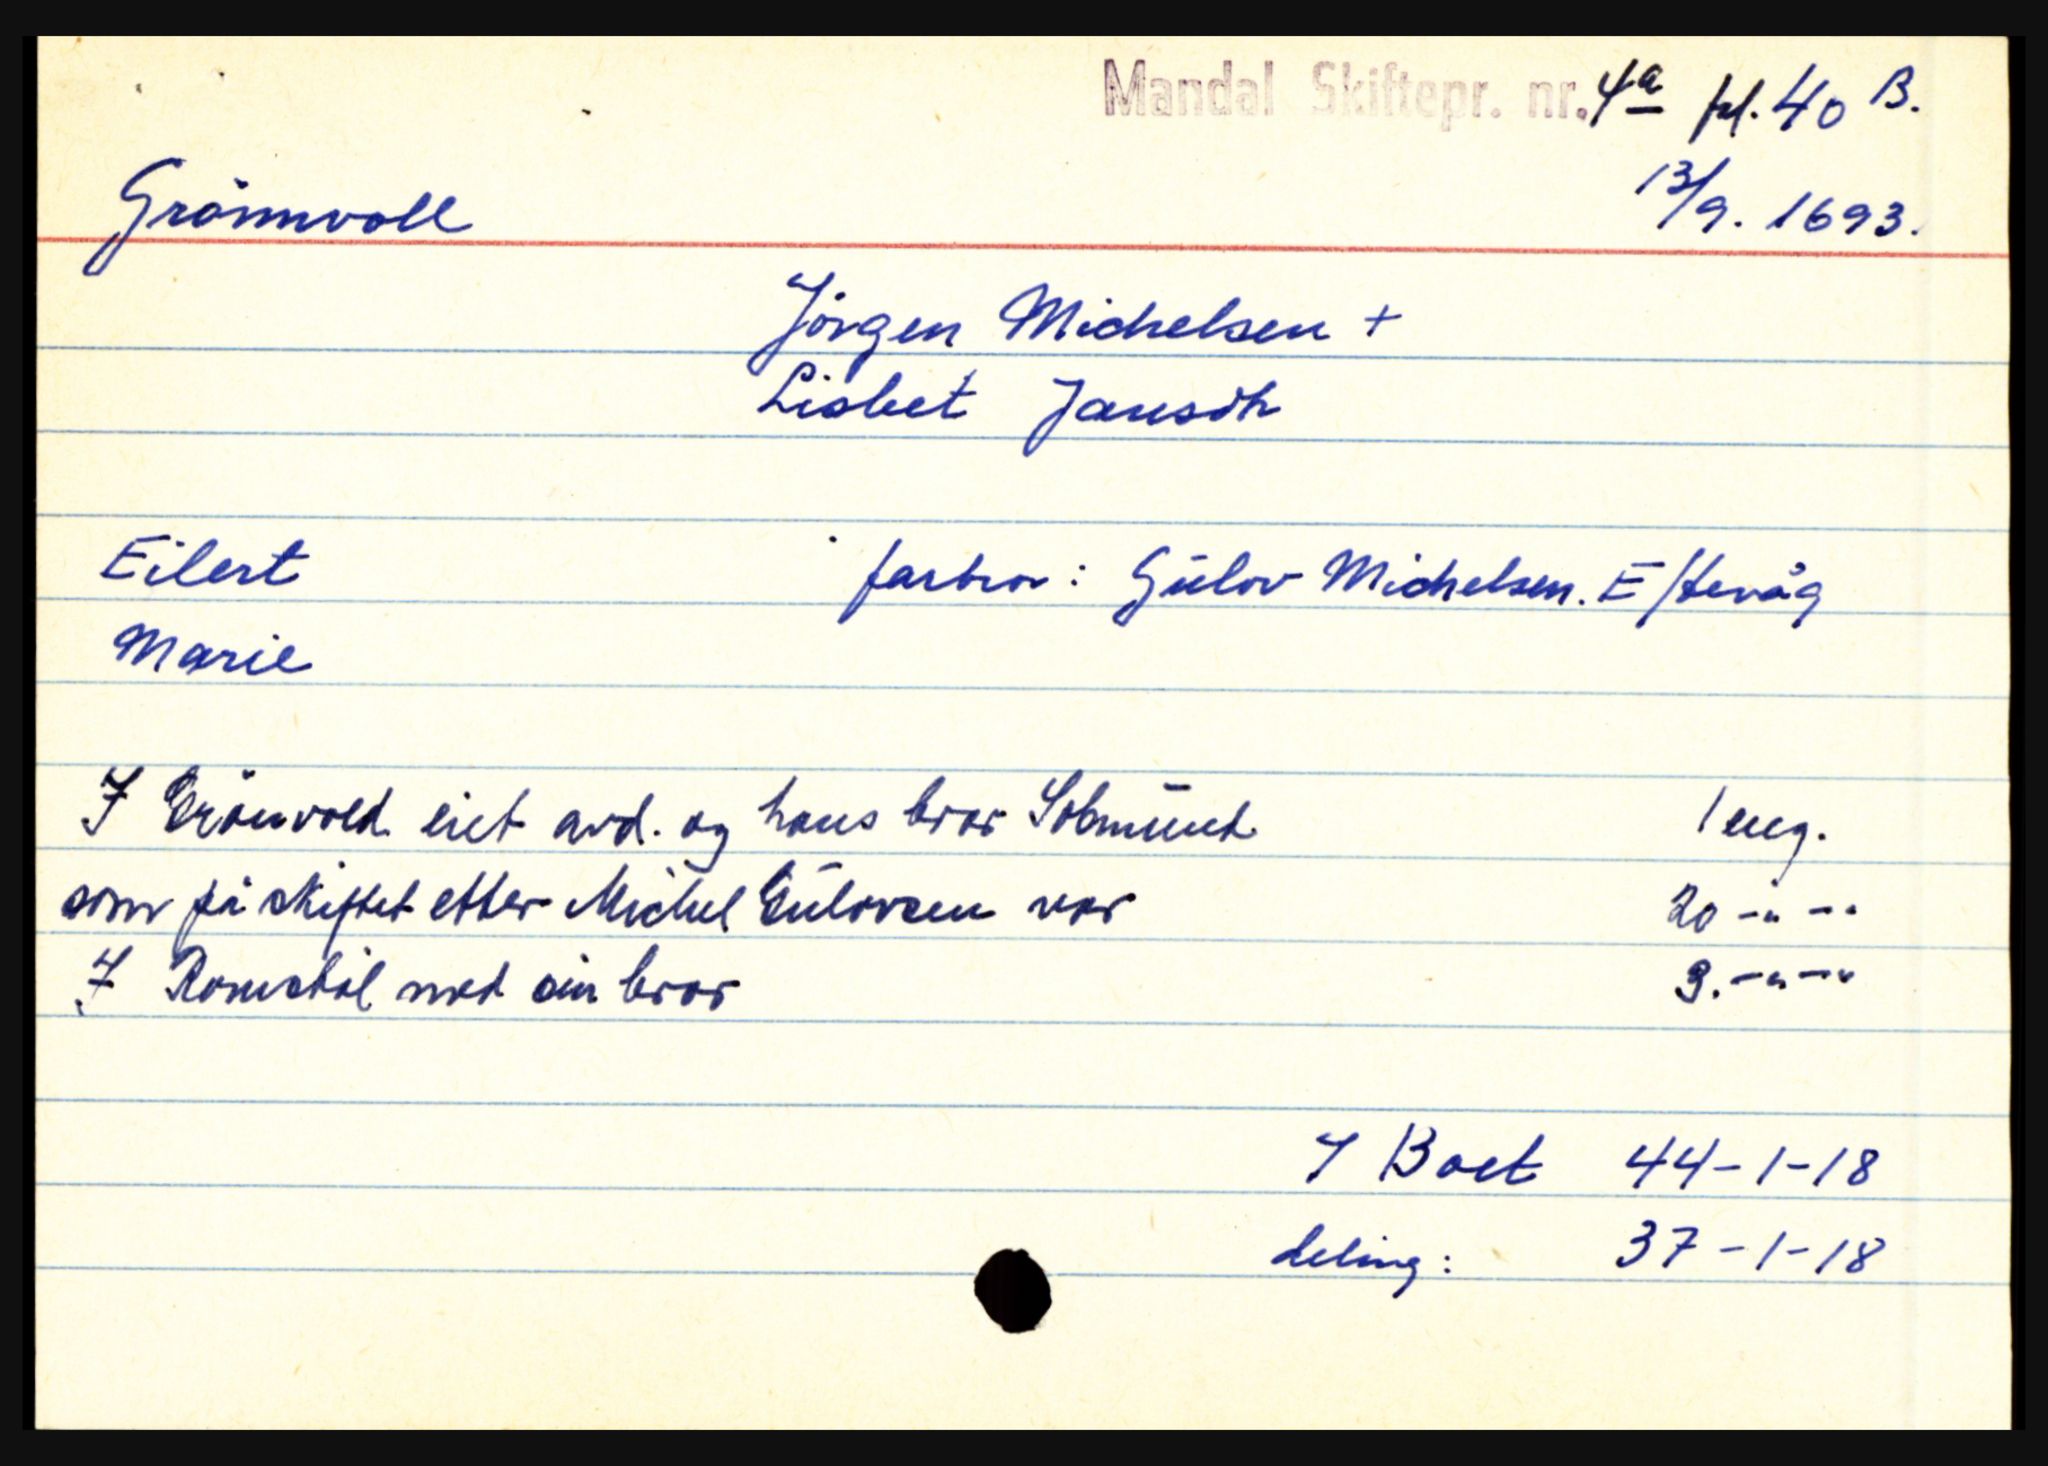 Mandal Skiftepr. nr. 4a fol. 40 B.
13/9. 1693.
Grönnvoll
Jörgen Michelsen +
Lisbet Jansdtr
Eilert farbror: Gülov Michelsen. Eftevåg
Marie
I Grönvold eiet avd. og hans bror Salmünd 1 eng.
som på skiftet etter Michel Gülovsen var 20 -"- -"-
I Romstöl med sin bror 3. -"- -"-
I Boet 44-1-18
deling: 37-1-18